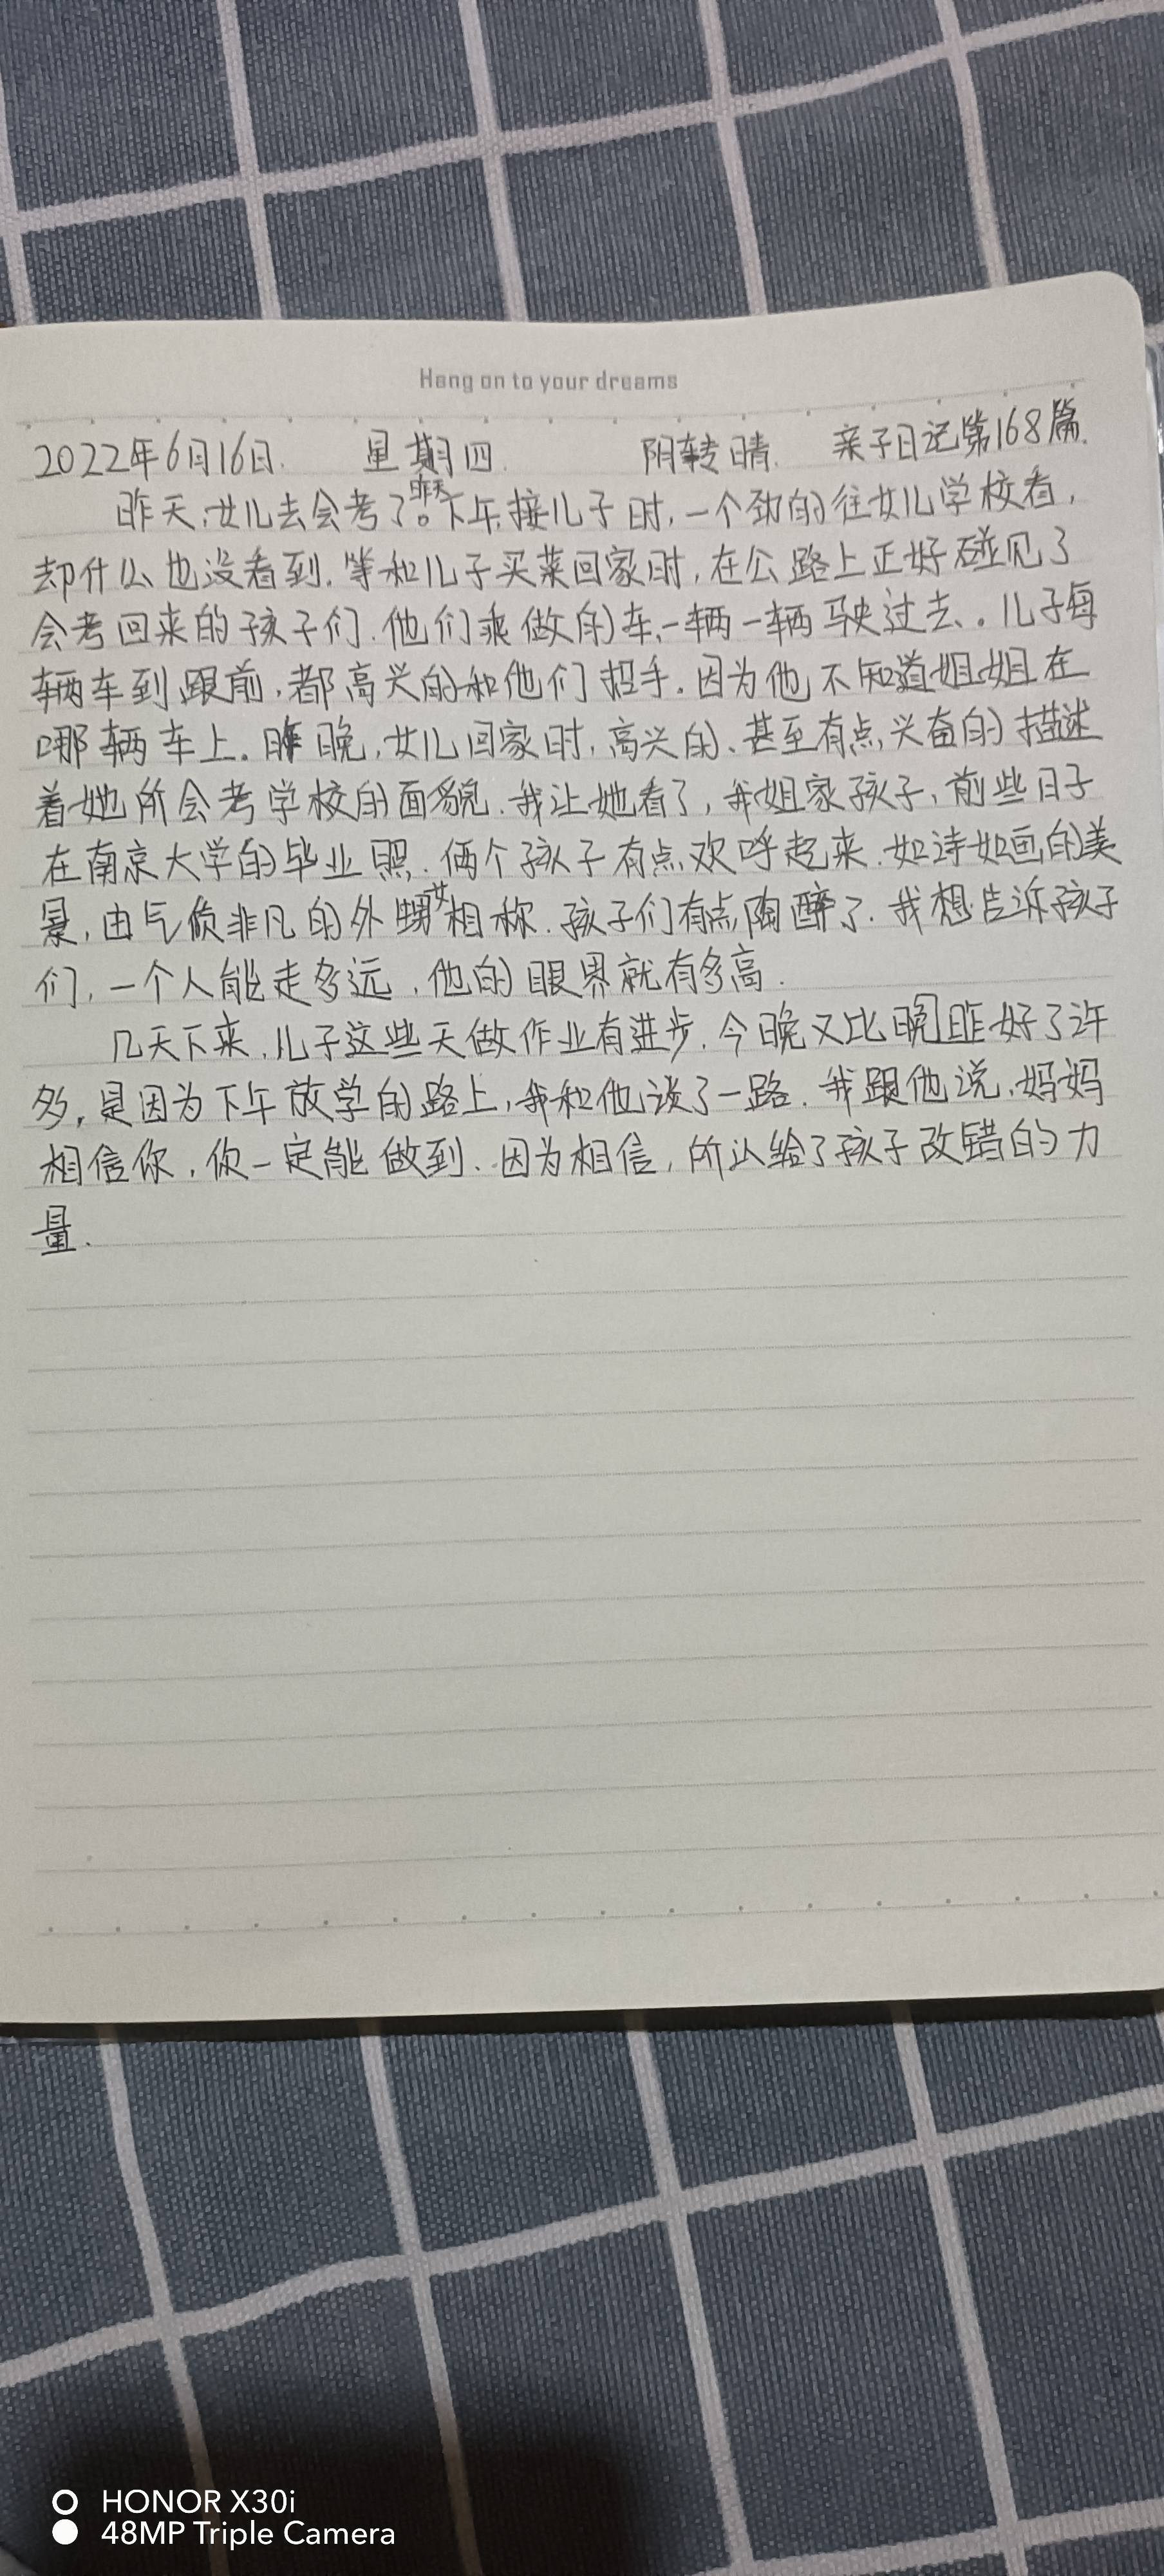 Hang on to your dreams
2022年6月16日. 星期四. 阴转晴. 亲子日记第168篇.
昨天,女儿去会考了。昨天下午,接儿子时,一个劲的往女儿学校看,
却什么也没看到.等和儿子买菜回家时,在公路上正好碰见了
会考回来的孩子们.他们乘做的车,一辆一辆驶过去.。儿子每
辆车到跟前,都高兴的和他们招手。因为他不知道姐姐在
哪辆车上。昨晚,女儿回家时,高兴的、甚至有点兴奋的描述
着她所会考学校的面貌.我让她看了,我姐家孩子,前些日子
在南京大学的毕业照.俩个孩子有点欢呼起来.如诗如画的美
景,由气质非凡的外甥女相称.孩子们有点陶醉了.我想告诉孩子
们,一个人能走多远,他的眼界就有多高.
几天下来,儿子这些天做作业有进步.今晚又比晚昨好了许
多,是因为下午放学的路上,我和他谈了一路.我跟他说,妈妈
相信你,你一定能做到.因为相信,所以给了孩子改错的力
量.
HONOR X30i
48MP Triple Camera